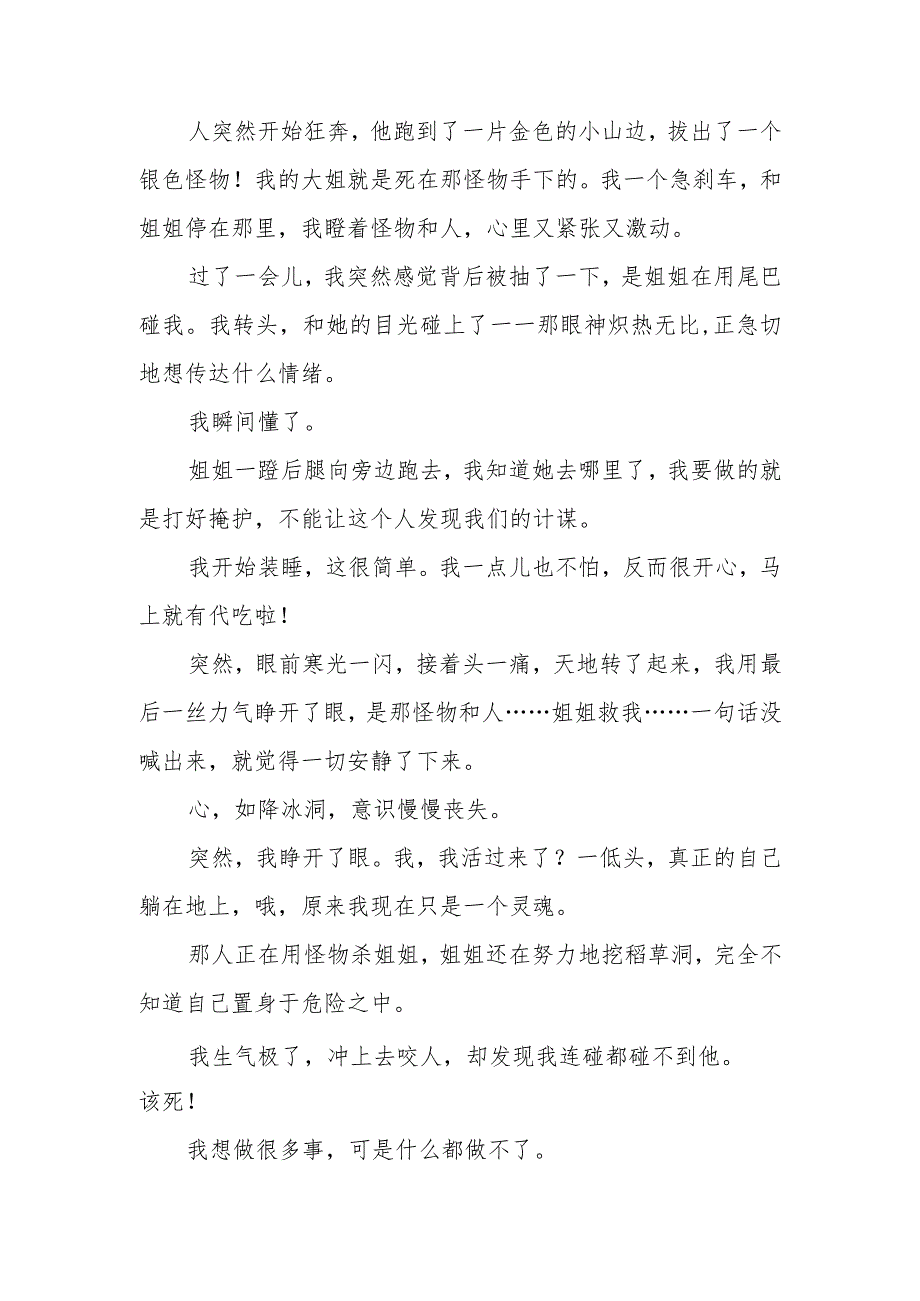 人突然开始狂奔，他跑到了一片金色的小山边，拔出了一个
银色怪物！我的大姐就是死在那怪物手下的。我一个急刹车，和
姐姐停在那里，我瞪着怪物和人，心里又紧张又激动。
过了一会儿，我突然感觉背后被抽了一下，是姐姐在用尾巴
碰我。我转头，和她的目光碰上了一一那眼神炽热无比,正急切
地想传达什么情绪。
我瞬间懂了。
姐姐一蹬后腿向旁边跑去，我知道她去哪里了，我要做的就
是打好掩护，不能让这个人发现我们的计谋。
我开始装睡，这很简单。我一点儿也不怕，反而很开心，马
上就有代吃啦！
突然，眼前寒光一闪，接着头一痛，天地转了起来，我用最
后一丝力气睁开了眼，是那怪物和人……姐姐救我……一句话没
喊出来，就觉得一切安静了下来。
心，如降冰洞，意识慢慢丧失。
突然，我睁开了眼。我，我活过来了？一低头，真正的自己
躺在地上，哦，原来我现在只是一个灵魂。
那人正在用怪物杀姐姐，姐姐还在努力地挖稻草洞，完全不
知道自己置身于危险之中。
我生气极了，冲上去咬人，却发现我连碰都碰不到他。
该死！
我想做很多事，可是什么都做不了。